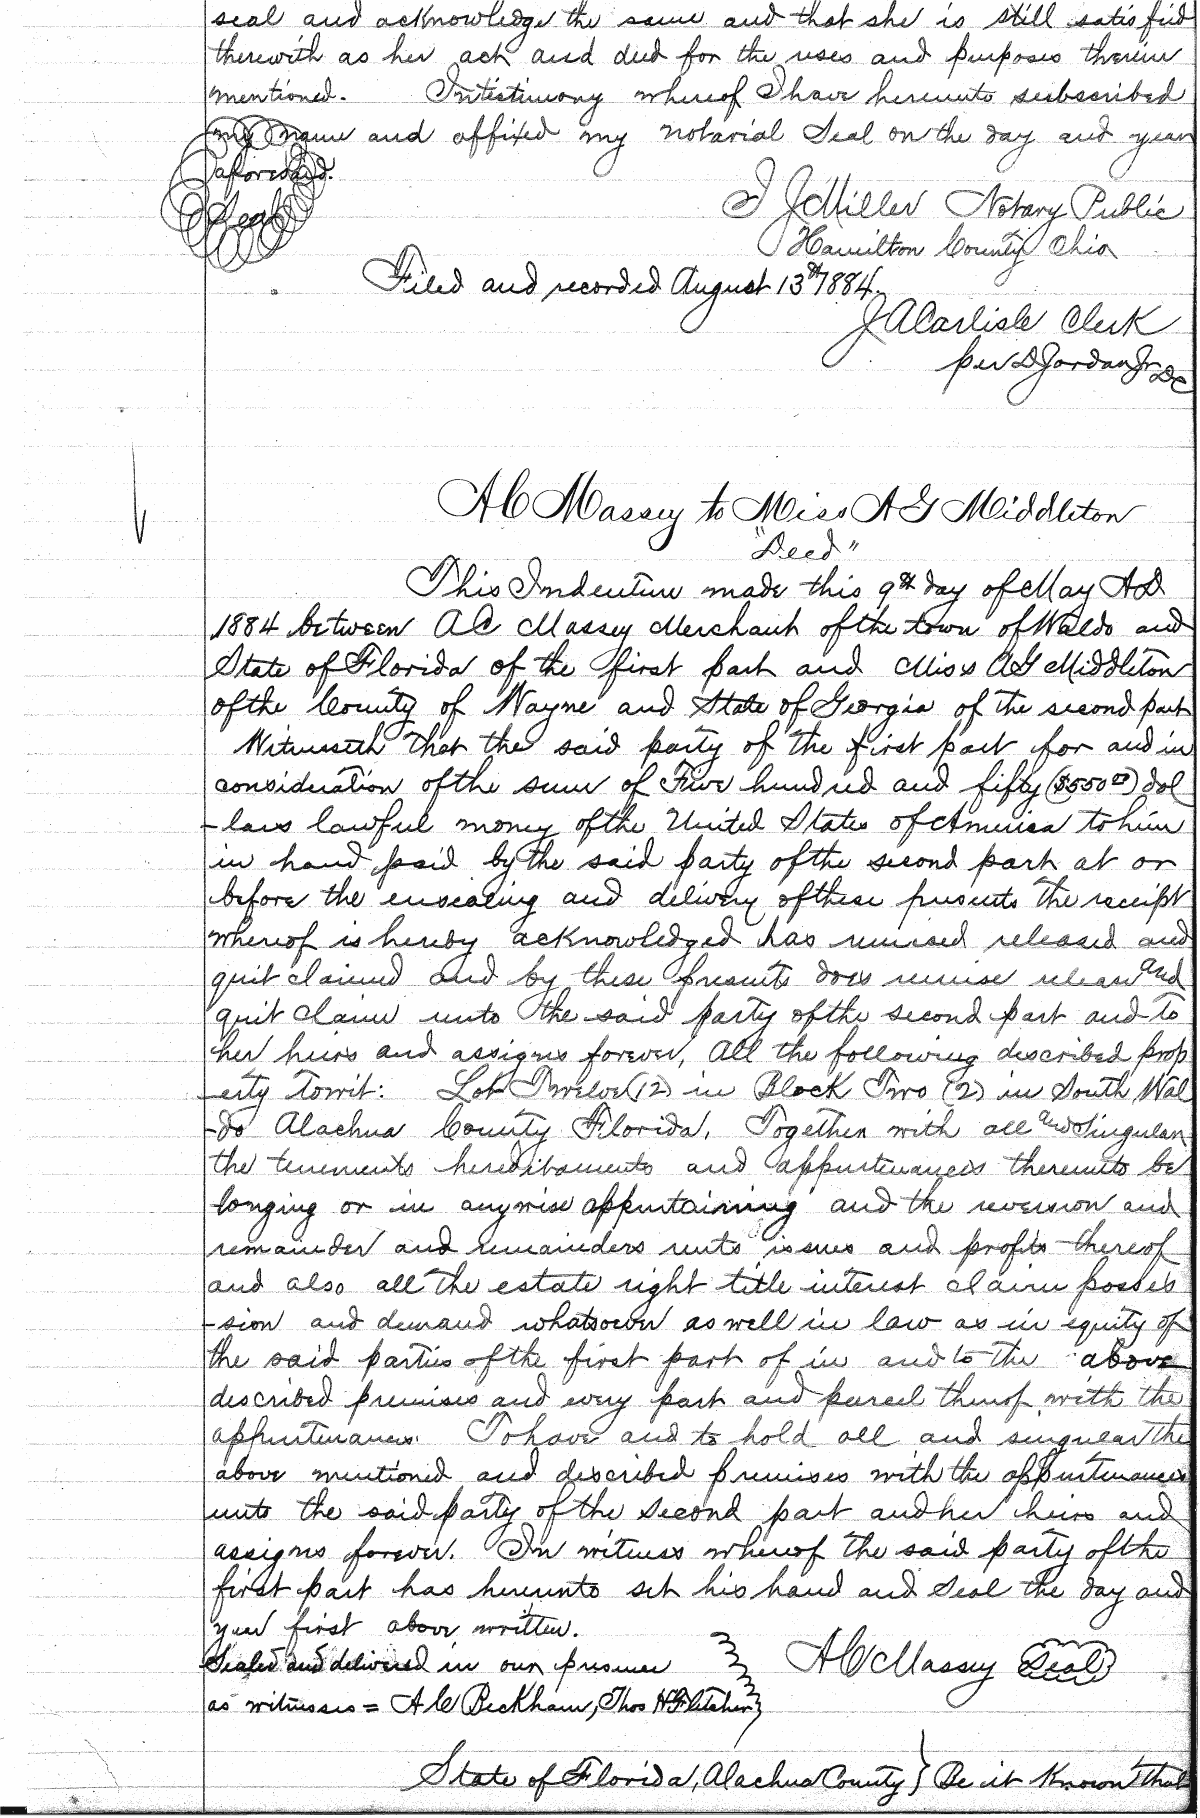 seal and acknowledge the same and that she is still satisfied
therewith as her act and deed for the uses and purposes therein
mentioned. Intestimony whereof I have hereunto subscribed
my name and affixed my notarial Seal on the day and year
aforesaid.
Seal
I J Miller Notary Public
Hamilton County Ohio
Filed and recorded August 13th 1884.
J A Carlisle Clerk
per D Jordan Jr DC
A C Massey to Miss A G Middleton
"Deed"
This Indenture made this 9th day of May AD
1884 between A C Massey Merchant of the town of Waldo and
State of Florida of the first part and Miss A G Middleton
of the County of Wayne and State of Georgia of the second part
Witnesseth that the said party of the first part for and in
consideration of the sum of Five hundred and fifty ($550 00) dol
-lars lawful money of the United States of America to him
in hand paid by the said party of the second part at or
before the ensealing and delivery of these presents the receipt
whereof is hereby acknowledged has remised released and
quit claimed and by these presents does remise release and
quit claim unto the said party of the second part and to
her heirs and assigns forever, All the following described prop
-erty towit: Lot Twelve (12) in Block Two (2) in South Wal
-do Alachua County Florida, Together with all and Singular
the tenements hereditaments and appurtenances thereunto be
longing or in anywise appurtaining and the reversion and
remainder and remainders rents issues and profits thereof
and also all the estate right title interest claim posses
-sion and demand whatsoever as well in law as in equity of
the said parties of the first part of in and to the above
described premises and every part and parcel thereof with the
appurtenances. To have and to hold all and singular the
above mentioned and described premises with the appurtenances
unto the said party of the second part and her heirs and
assigns forever. In witness whereof the said party of the
first part has hereunto set his hand and Seal the day and
year first above written.
Sealed and delivered in our presence
A C Massey Seal
as witnesses = A C Beckham, Thos H Fletcher
State of Florida, Alachua County } Be it Known that